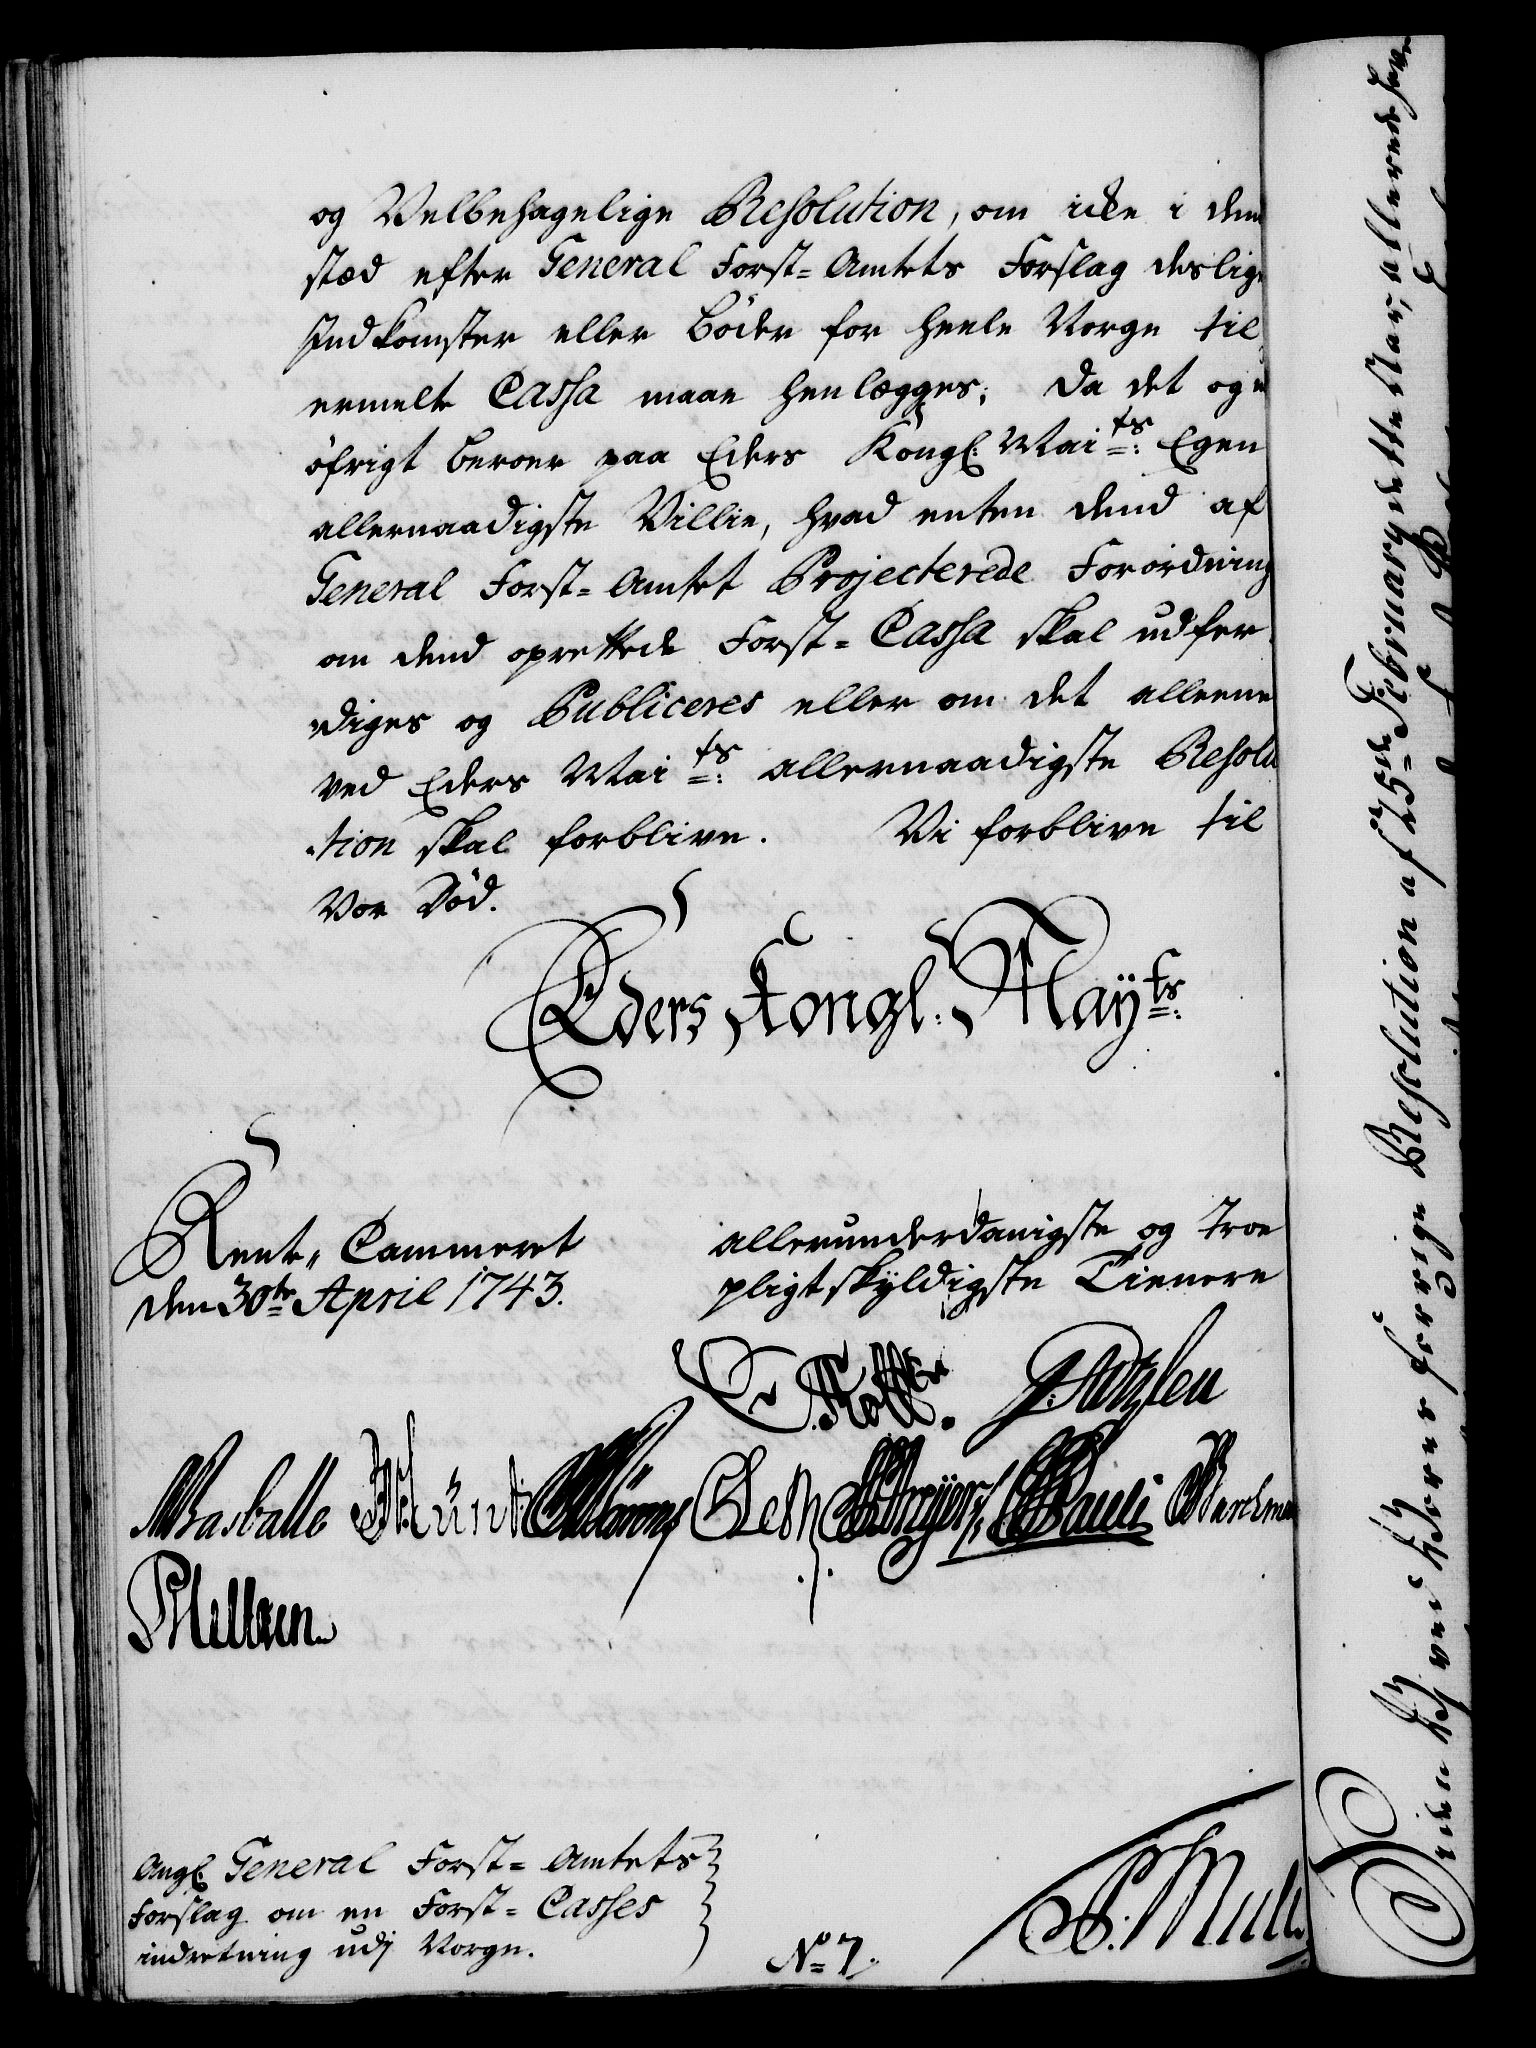 og Velbehagelige Resolution, om icke i den
stæd efter General Forst=Amtets Forslag deslige
Indkomster eller Bøder for heele Norge til
ermelte Cassa maae henlægges; Da det og i
øfrigt beroer paa Eders Kongl: Maits: Egen
allernaadigste Villie, hvad enten dend af
General Forst=Amtet Projecterede Forordning
om dend oprettede Forst=Cassa skal udfer
diges og Publiceres eller om det alleene
ved Eders Maits: allernaadigste Resolu
tion skal forblive. Vi forblive til
Vor Død.
Eders Kongl: Mayts:
Rente-Cammeret
den 30te April 1743.
allerunderdanigste og Troe
pligtskyldigste Tienere
Wasballe
Pauli
Angl: General Forst=Amtets
Forslag om en Forst=Casses
indretning udj Norge.
No 7.
ved Vores forrige Resolution af 25de February dette Aar, allerede have